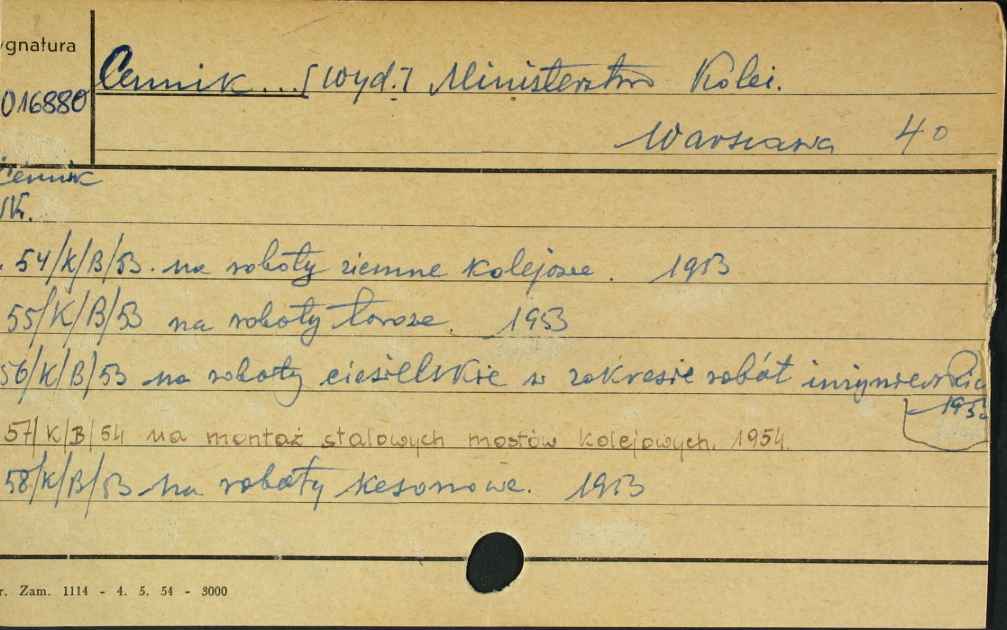 ygnatura
Cennik... [wyd.] Ministerstwo Kolei.
016880
Warszawa 4°
Cennik
NK.
. 54/K/B/53. na roboty ziemne kolejowe. 1953
55/K/B/53 na roboty torowe. 1953
56/K/B/53 na roboty ciesielskie w zakresie robót inżynierskich
1953
57/K/B/54 na montaż stalowych mostów kolejowych. 1954.
58/K/B/53 na roboty kesonowe. 1953
r. Zam. 1114 - 4. 5. 54 - 3000